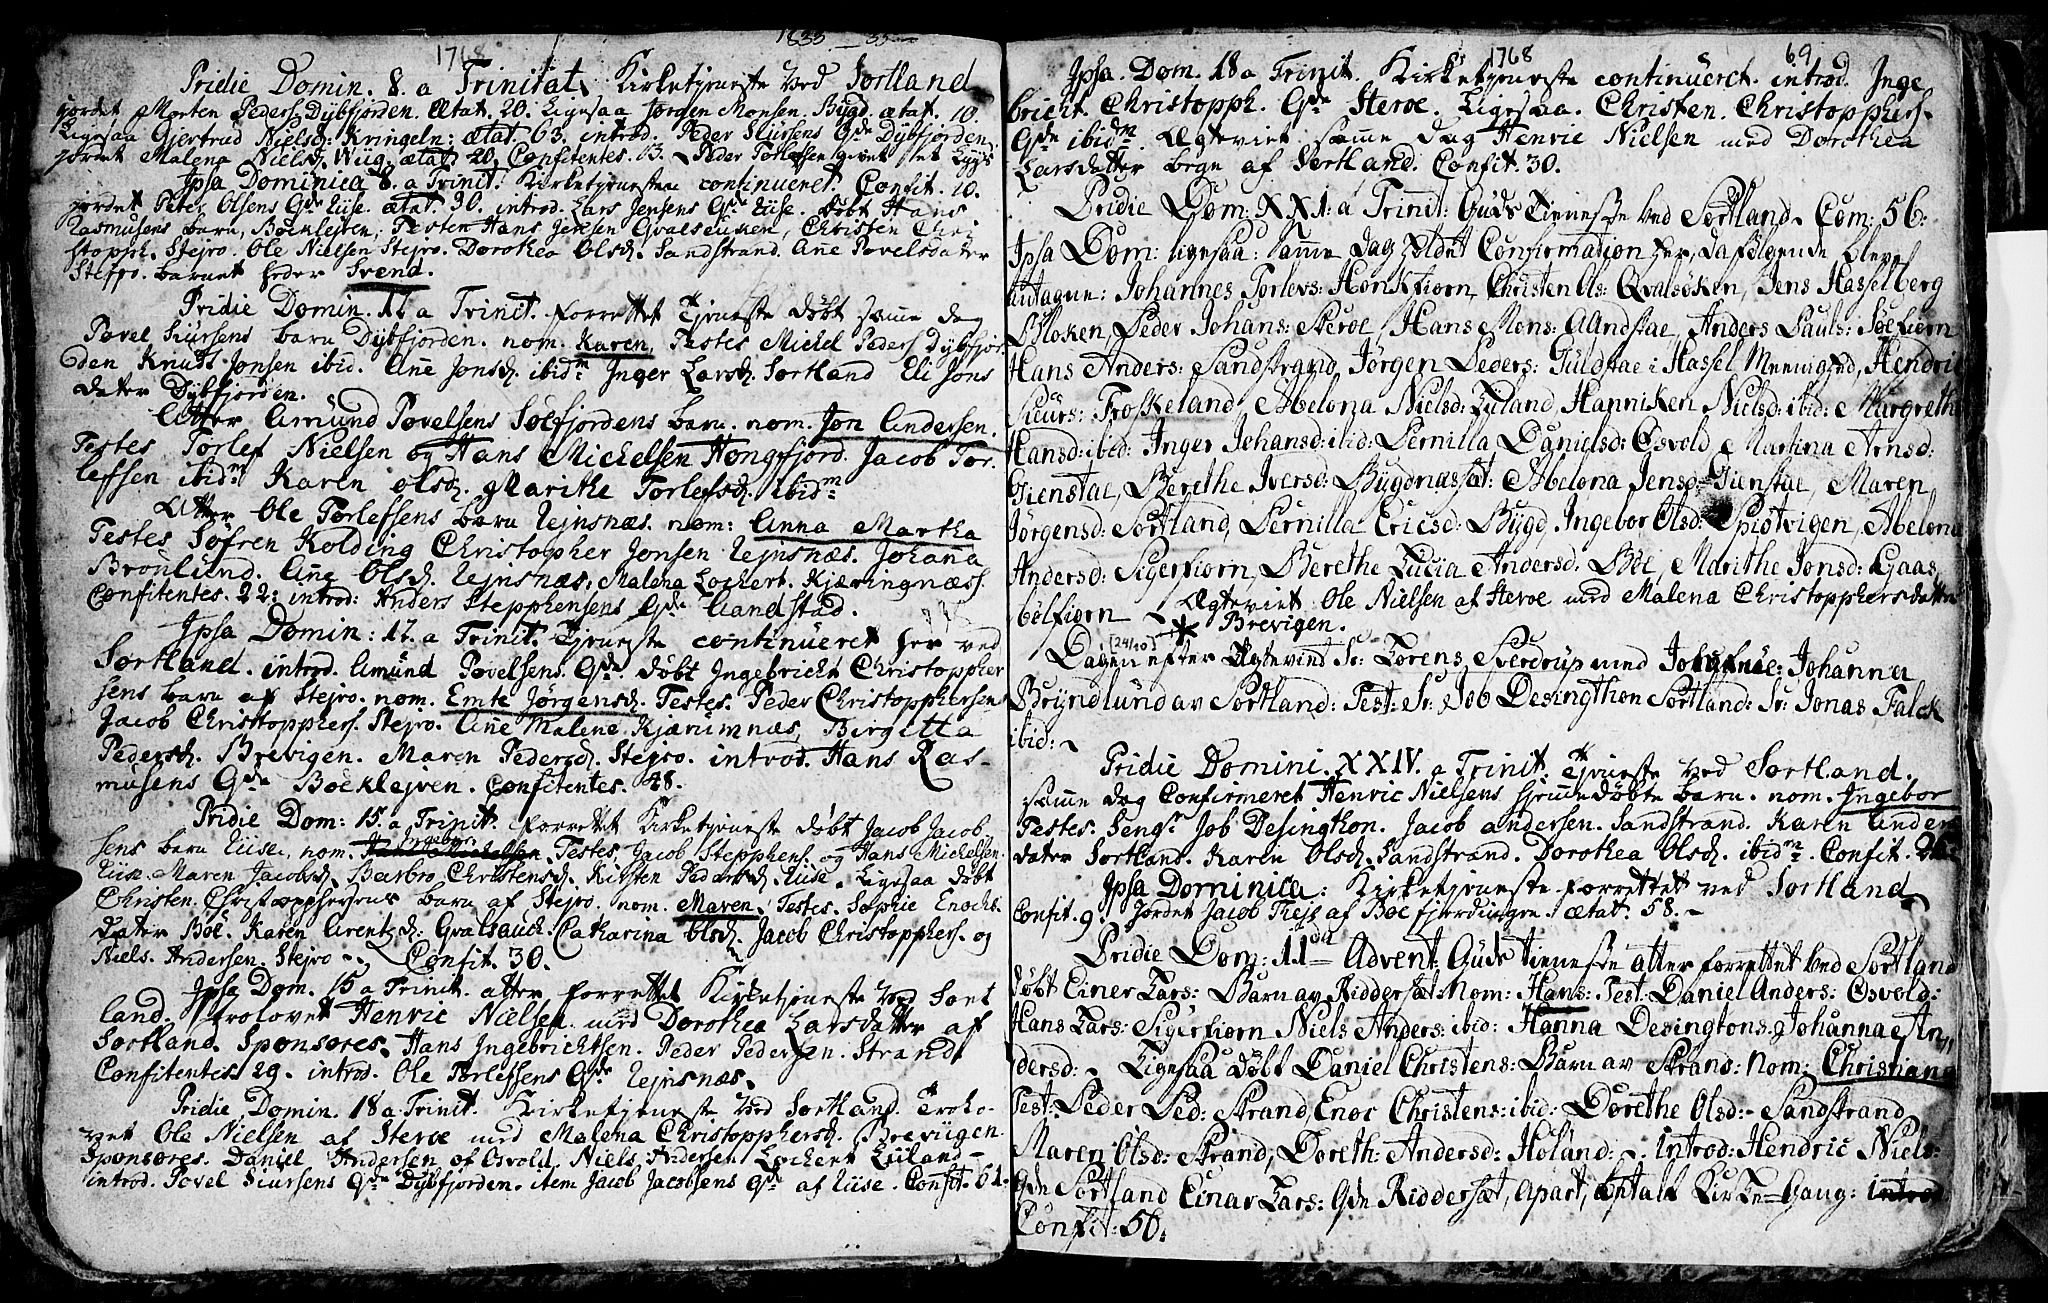 1768
1833 - 35
Pridie Domin. 8. a Trinitat. Kirketjeneste ved Sortland
jordet Morten Peders. Dybfjorden. Ætat. 20. Ligesaa Jørgen Monsen. Bygd. ætat. 10.
Ligesaa Gjertrud Nielsd. Kringeln: ætat. 63. introd. Peder Siursens Qde Dybfjorden
jordet Malena Nielsd. ætat. 20. Confitentes. 13. Peder Torlefsen
Ipsa Dominica 8. a Trinit. Kirketjenesten continueret. Confit. 10.
jordet Peter Olsens Qde Liise. ætat. 30. introd. Lars Jensens Qde Liise. døbt Hans
Rasmusens barn, Bøcklejven, Testes Hans Jensen Qvalsaucken, Christen Chri
stopph. Stejro. Ole Nielsen Stejro. Dorothea Olsd. Sandstrand. Ane Povelsdater
Stejro. barnet heder Svend.
Pridie Domin. 11 a Trinit. forrettet Tjeneste døbt samme dag
Povel Siursens barn Dybfjorden. nom. Karen, Testes Michel Peders. Dybfjor
den Knudt Jonsen ibid. Ane Jonsd. ibidm Inger Larsd. Sortland Eli Jons
dater Dybfjorden.
Atter Amund Povelsens Soelfjordens barn. nom. Jon Andersen.
Testes Torlef Nielsen og Hans Michelsen Hongfjord. Jacob Tor.
lefsen ibidm Karen olsd. Marithe Torlefsd. ibidm
Atter Ole Torlefsens barn Vejnsnæs. nom: Anna Martha
Testes Søfren Kolding Christopher Jonsen Vejnsnæs. Johana
Bronlund. Ane Olsd. Vejnsnæs. Malena Lochert. Kjæringnæss.
Confitentes. 22: introd: Anders Stepphensens Qde Aandstad.
Ipsa Domin: 17. a Trinit. Tjeneste continueret her ved
Sortland. introd. Amund Povelsens Qde. døbt Ingebricht Christopher
sens barn af Stejro. nom. Emte Jørgensd. Testes. Peder Christophersen
Jacob Christopphers. Stejro. Ane Malene Kjærinnæs, Birgitta
Pedersd. Brevigen. Maren Pedersd. Stejro. introd. Hans Ras-
musens Qde Boeklejven. Confitentes. 48.
Pridie Dom: 15 a Trinit. forrettet Kirketjeneste døbt Jacob Jacob
sens barn Liise, nom. Testes, Jacob Stepphens. og Hans Michelsen.
Liise. Maren Jacobsd. Barbro Christensd. Kirsten Pedersd. Liise. Ligesaa døbt
Christen Christopphersens barn af Stejro. nom. Maren. Testes. Sophie Enochs
dater Böe. Karen Arentzd: Qvalsauck. Catharina Olsd. Jacob Christopphers. og
Niels. Andersen. Stejro. Confit. 30.
Ipsa Dom. 15 a Trinit. atter forrettet Kirketjeneste ved Sort
land. Trolovet Henric Nielsen. med Dorothea Larsdatter af
Sortland. Sponsores. Hans Ingebrichtsen. Peder Pedersen. Strand.
Confitentes. 29. introd. Ole Torlefsens Qde Vejnsnæs.
Pridie Domin. 18 a Trinit. Kirketjeneste ved Sortland. Trolo-
vet Ole Nielsen af Steroe med Malena Christopphersd. Breviigen.
Sponsores. Daniel Andersen af Osvold. Niels Andersen Lochert Liiland -
introd. Povel Siursens Qde Dybfjorden. item Jacob Jacobsens Qde af Liise. Confit. 61.
1768
69
Ipsa. Dom. 18 a Trinit. Kirketjeneste continueret. introd. Inge
bricht. Christopph. Qde Steroe. Ligesaa. Christen. Christopphers.
Qde ibidm. Ægteviet samme dag Henric Nielsen med Dorothea
Larsdatter begge af Sortland. Confit. 30.
Pridie Dom: XXI: a Trinit: Guds Tieneste ved Sortland. Com: 56:
Ipsa Dom: ligesaa: samme Dag holdet Confirmation her, da følgende bleve
antagne: Johannes Torlevs: Honkfiorn, Christen Ols: Qvalsöken, Jens Hasselberg
Bloken, Peder Johans: Steroe, Hans Mons: Aandstae, Anders Pauls: Söefiorn
Hans Anders: Sandstrand, Jörgen Peders: Guldstae i Hassel Meenighed, Hendric
Siurs: Froskeland, Abelona Nielsd: Lyland, Hanniken Nielsd: ibid: Margrethe
Hansd: ibid: Inger Johansd: ibid: Pernilla Danielsd: Osvold, Martina Arnsd:
Gienstae, Berethe Iversd: Bugdnæsæt: Abelona Jensd: Gienstae, Maren
Jörgensd: Sortland, Pernilla Ericsd: Bygd, Ingebor Olsd: Spiotvigen, Abelona
Andersd: Sigerfiorn, Berethe Lucia Andersd. Böe, Marithe Jonsd: Gaas
belfiorn Ægteviet Ole Nielsen af Steroe med Malena Christopphersdatter
Brevigen.
[24/10]
Dagen efter Ægteviet Sr: Lorens Sverdrup med Jomfrue: Johanna
Bryndlund av Sortland: Test: Sr: Job Desingthon Sortland: Sr: Jonas Falck
ibid:
Pridie Domini. XXIV. a Trinit. Tjeneste ved Sortland.
samme dag Confirmeret Henric Nielsens hjemmedøbte barn. nom. Ingebor
Testes. Sengr. Job Desingthon. Jacob andersen. Sandstrand. Karen Ander
dater Sortland. Karen Olsd. Sandstrand. Dorothea Olsd. ibidm. Confit.
Ipsa Dominica: Kirketjeneste forrettet ved Sortland
Confit. 9. Jordet Jacob Thejs af Boefjerdingen. ætat. 58.
Pridie Dom: 11da Advent: Guds tieneste atter forrettet ved Sortland
döbt Einer Lars: Barn av Riddersæt: Nom: Hans: Test: Daniel Anders: Osvold:
Hans Lars: Sigerfiorn Niels Anders: ibid: Hanna Desingtons. Johanna An,,
dersd: Ligesaa döbt Daniel Christens: Barn av Strand: Nom: Christiana
Test: Peder Ped: Strand, Enoc Christens: ibid: Dorethe Olsd: Sandstrand
Maren Olsd: Strand, Doreth: Andersd: Holand: introd: Hendric Niels:
Qde Sortland Einar Lars: Qde Riddersæt, apart, betalt Kirke-Gang: introd
Confit: 56: